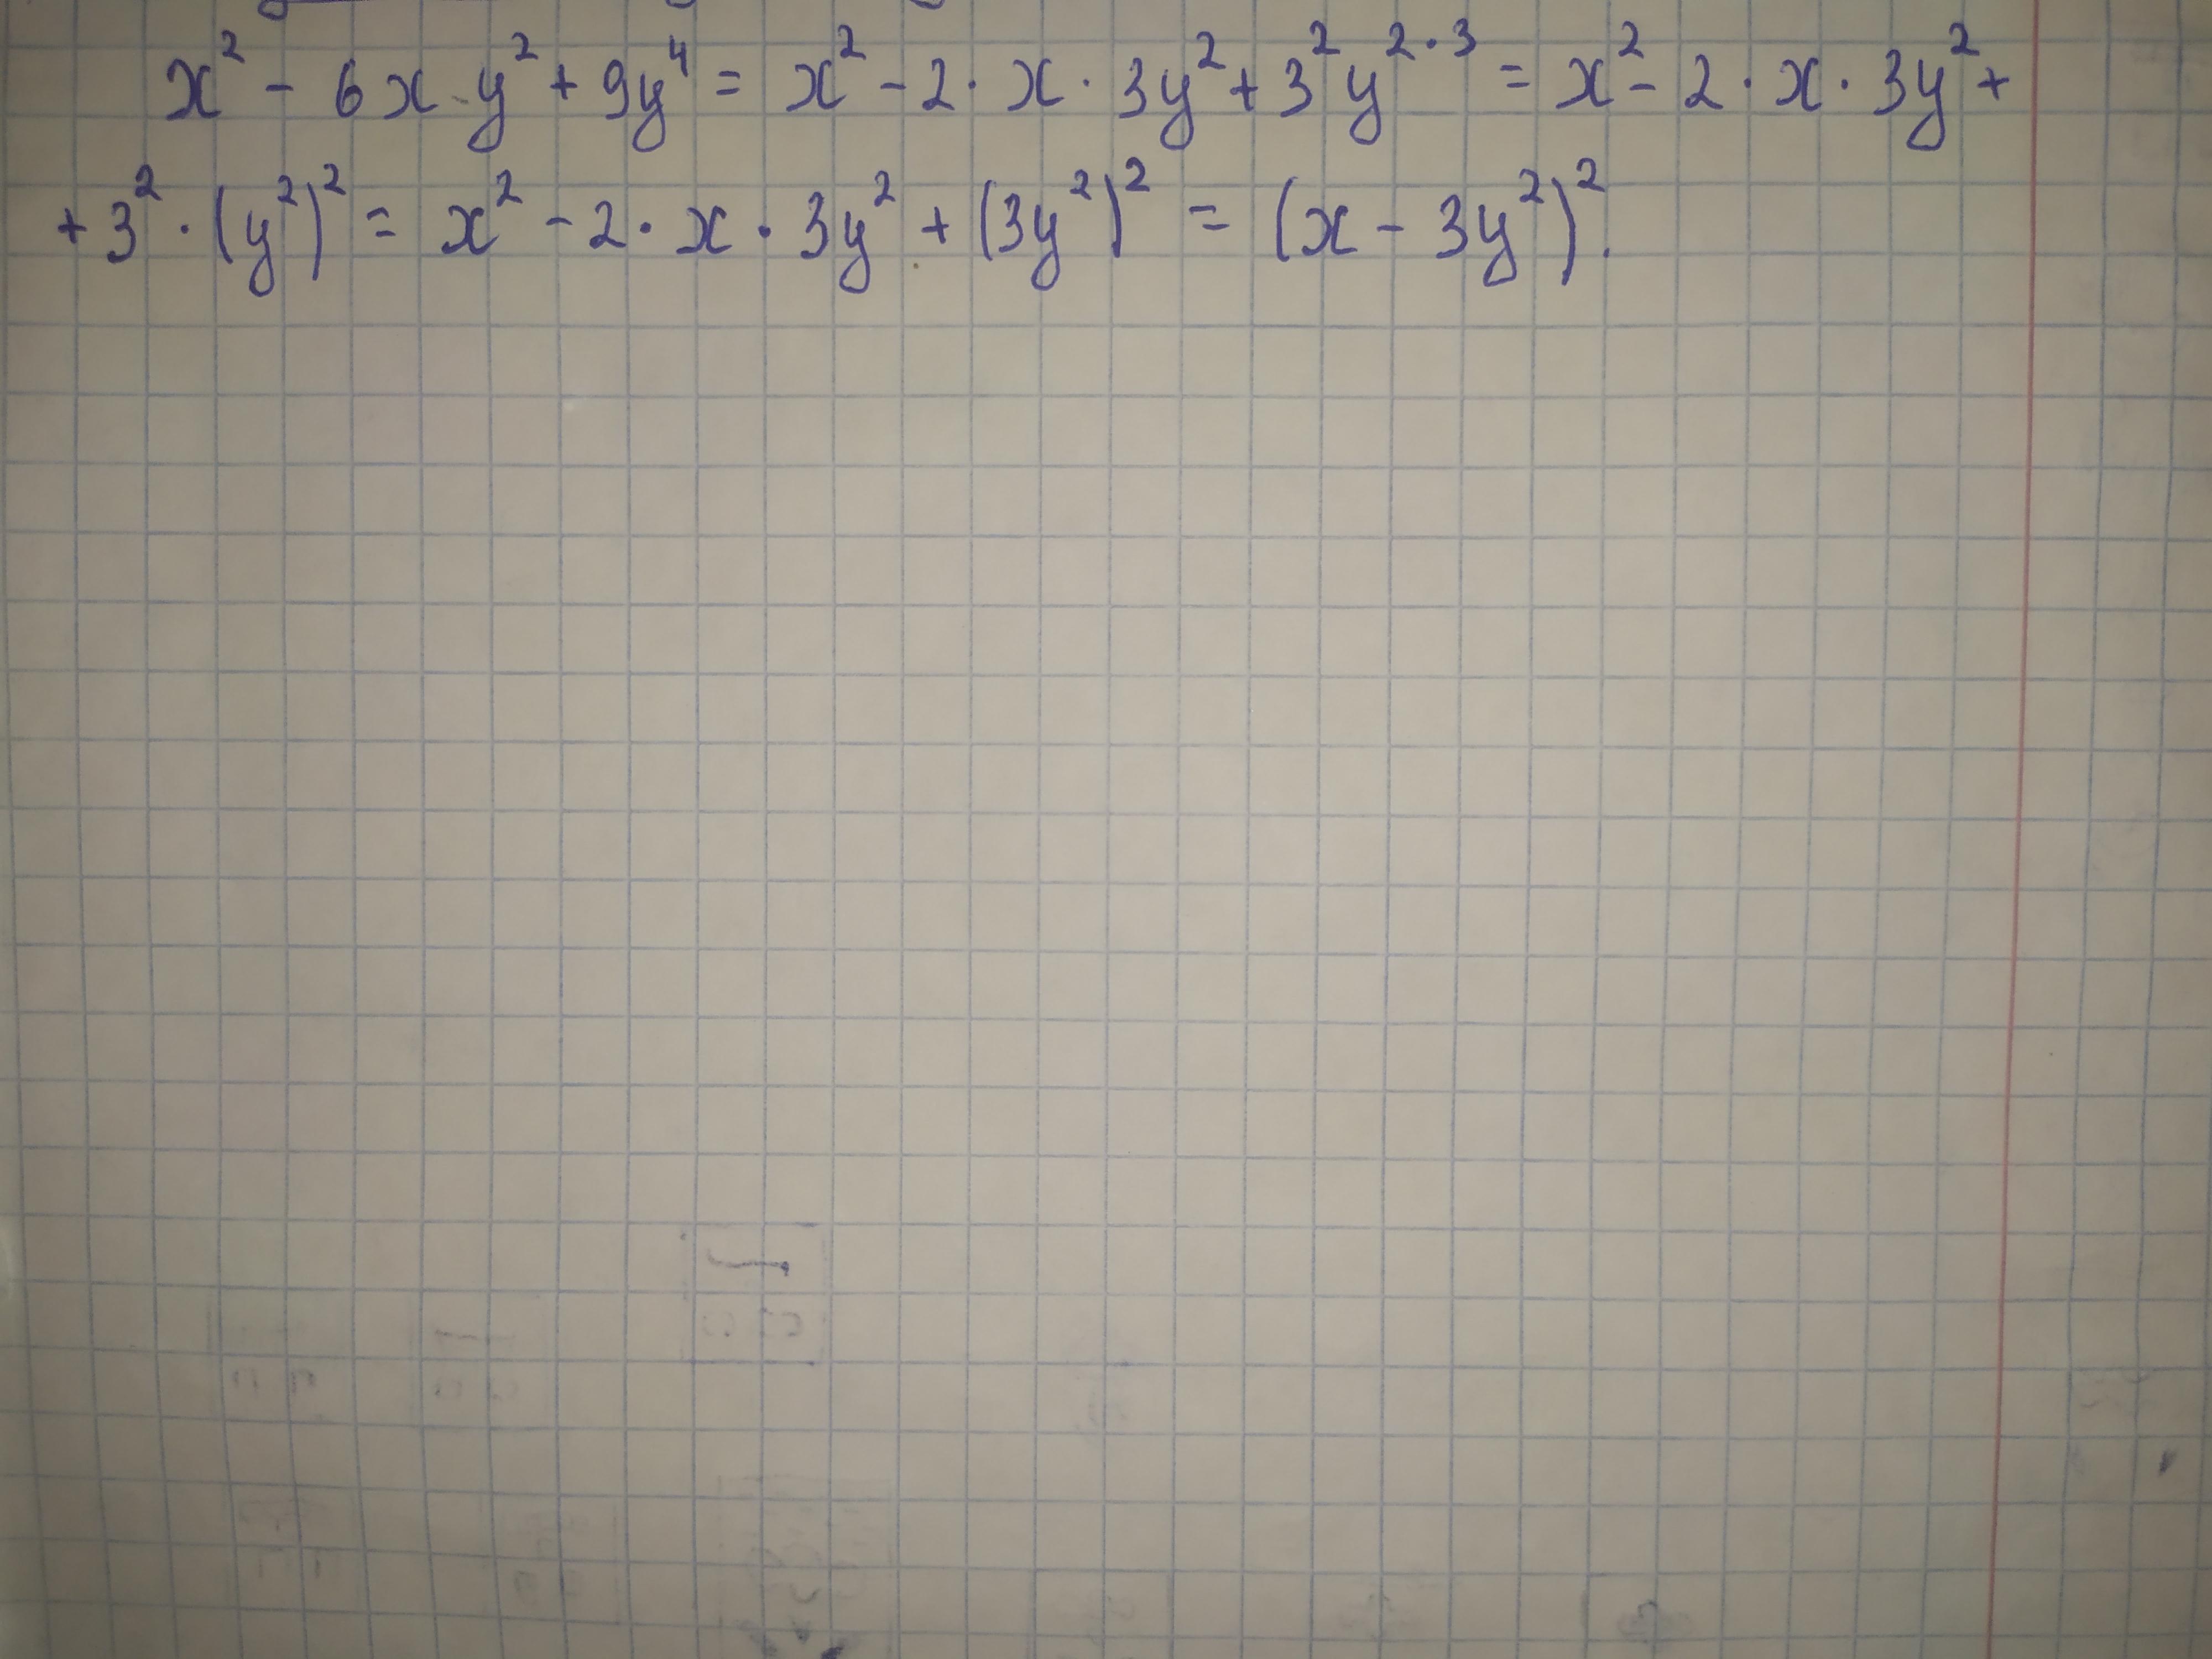 x² - 6x y² + 9y⁴ = x² - 2 · x · 3y² + 3² y²˙³ = x² - 2 · x · 3y² +
+ 3² · (y²)² = x² - 2 · x · 3y² + (3y²)² = (x - 3y²)².